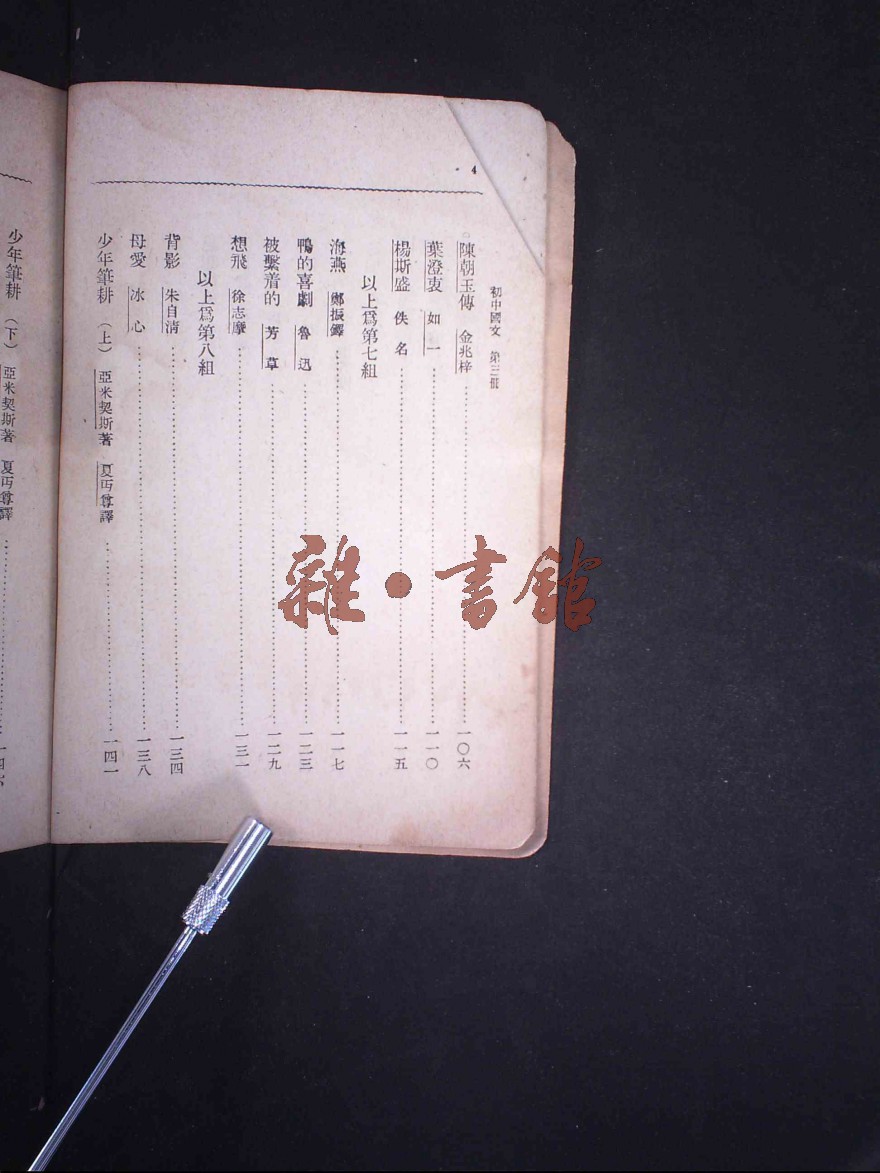 初中國文 第三冊
4
陳朝玉傳 金兆梓……一〇六
葉澄衷 如一……一一〇
楊斯盛 佚名……一一五
以上爲第七組
海燕 鄭振鐸……一一七
鴨的喜劇 魯迅……一二三
被繫着的 芳草……一二九
想飛 徐志摩……一三一
以上爲第八組
背影 朱自清……一三四
母愛 冰心……一三八
少年筆耕（上） 亞米契斯著 夏丏尊譯……一四一
少年筆耕（下） 亞米契斯著 夏丏尊譯……一四
雜·書館